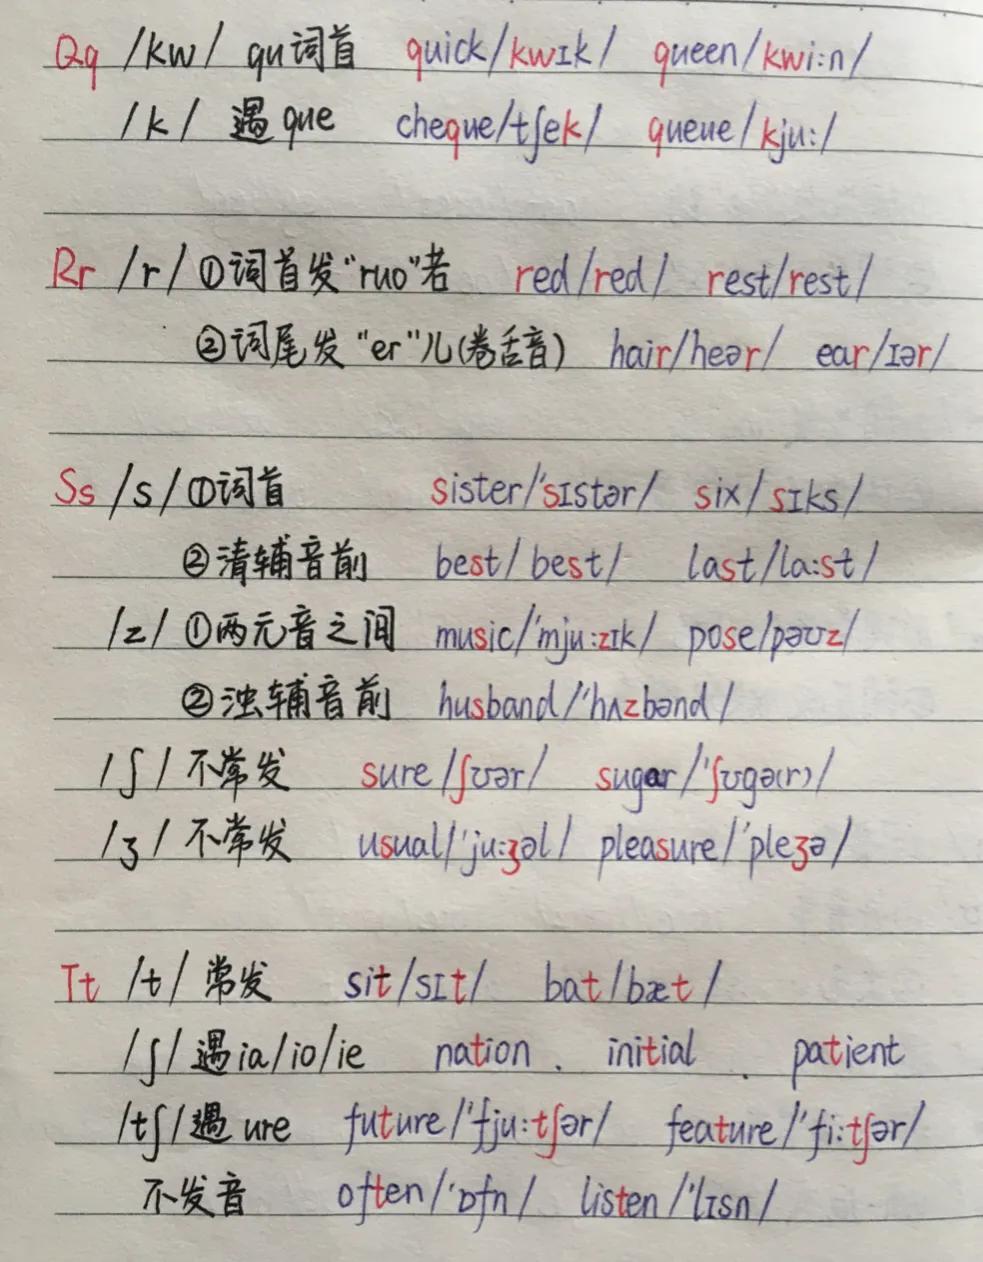 Qq /kw/ qu词首 quick/kwɪk/ queen/kwi:n/
/k/ 遇que cheque/tʃek/ queue/kju:/
Rr /r/ ①词首发"ruo"若 red/red/ rest/rest/
②词尾发"er"儿(卷舌音) hair/heər/ ear/ɪər/
Ss /s/ ①词首 sister/'sɪstər/ six/sɪks/
②清辅音前 best/best/ last/la:st/
/z/ ①两元音之间 music/'mju:zɪk/ pose/pəʊz/
②浊辅音前 husband/'hʌzbənd/
/ʃ/ 不常发 sure/ʃʊər/ sugar/'ʃʊgə(r)/
/ʒ/ 不常发 usual/'ju:ʒəl/ pleasure/'pleʒə/
Tt /t/ 常发 sit/sɪt/ bat/bæt/
/ʃ/ 遇ia/io/ie nation . initial . patient
/tʃ/ 遇ure future/'fju:tʃər/ feature/'fi:tʃər/
不发音 often/'ɒfn/ listen/'lɪsn/